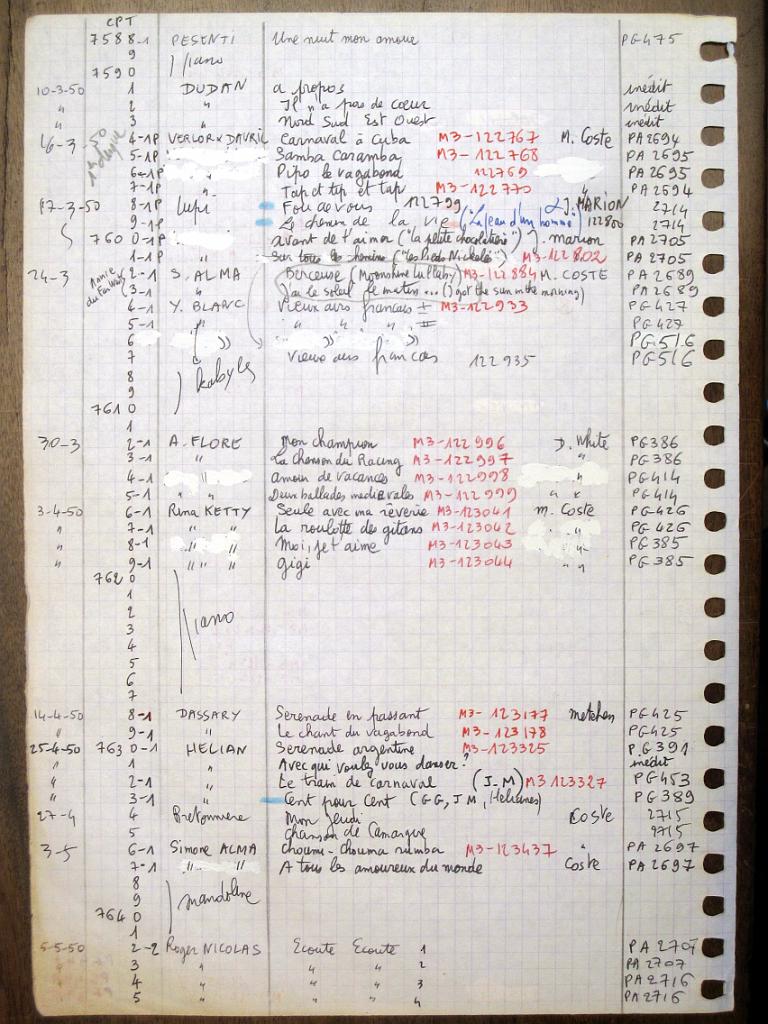 CPT
7588-1 PESENTI Une nuit mon amour PG475
9
7590 piano
10-3-50 1 DUDAN a propos inédit
" 2 " Il n'a pas de coeur inédit
" 3 " Nord Sud Est Ouest inédit
16-3-50 4-1P VERLOR x DAVRIL Carnaval à Cuba M3-122767 M. Coste PA 2694
5-1P Samba Caramba M3-122768 PA 2695
6-1P Pipo le vagabond 122769 PA 2695
7-1P " Tap et tip et tap M3-122770 " PA 2694
17-3-50 8-1P Lupi Fou de vous 122799 J. MARION 2714
9-1P Le chemin de la vie ("La peau d'un homme") 122800 2714
760 0-1P avant de t'aimer ("la petite chocolatière") J. marion PA 2705
1-1P " Sur tous les chemins ("les Pieds Nickelés") M3-122802 PA 2705
24-3 2-1 S. ALMA Berceuse (Moonshine lullaby) M3-122884 M. COSTE PA 2689
(3-1 " J'ai le soleil le matin... (I got the sun in the morning) PA 2689
4-1 Y. BLANC Vieux airs francais I M3-122933 PG 427
5-1 " " " " II PG 427
6 PG 516
7 Vieux airs francais 122935 PG 516
8 kabyles
9
761 0
1
30-3 2-1 A. FLORE Mon champion M3-122996 D. White PG 386
3-1 " La chanson du Racing M3-122997 PG 386
4-1 amour de vacances M3-122998 " PG 414
5-1 " " Deux ballades medievales M3-122999 " " PG 414
3-4-50 6-1 Rina KETTY Seule avec ma rêverie M3-123041 m. Coste PG 426
" 7-1 " " La roulotte des gitans M3-123042 PG 426
" 8-1 " Moi, je t'aime M3-123043 " PG 385
" 9-1 " " " gigi M3-123044 " " PG 385
762 0
1
2 piano
3
4
5
6
7
14-4-50 8-1 DASSARY Serenade en passant M3-123177 metehen PG 425
" 9-1 " Le chant du vagabond M3-123178 PG 425
25-4-50 763 0-1 HELIAN Serenade argentine M3-123325 P.G 391
" 1 " Avec qui voulez vous danser? inédit
" 2-1 " Le train de carnaval (J.M) M3 123327 PG 453
" 3-1 " Cent pour Cent (GG, J M, Helianes) PG 389
27-4 4 Bretonniere Mon Jeudi Coste 2715
5 Chanson de Camargue 2715
3-5 6-1 Simone ALMA choumi-chouma rumba M3-123437 " PA 2697
7-1 " " A tous les amoureux du monde Coste PA 2697
8
9 mandoline
764 0
1
5-5-50 2-2 Roger NICOLAS Ecoute Ecoute 1 PA 2707
3 " " " 2 PA 2707
4 " " " 3 PA 2716
5 " " " 4 PA 2716